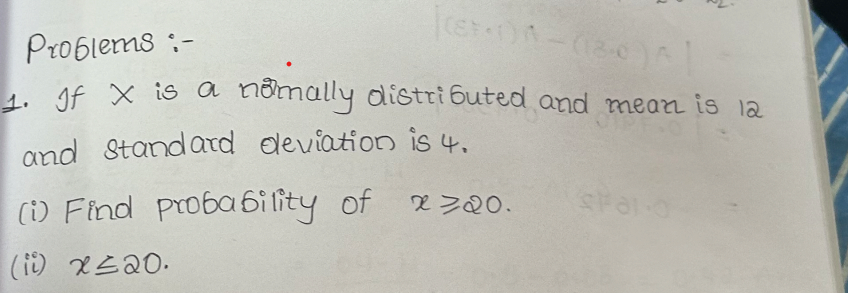 Problems :-
1. If X is a nomally distributed and mean is 12
and standard deviation is 4.
(i) Find probability of x ⩾ 20.
(ii) x ≤ 20.